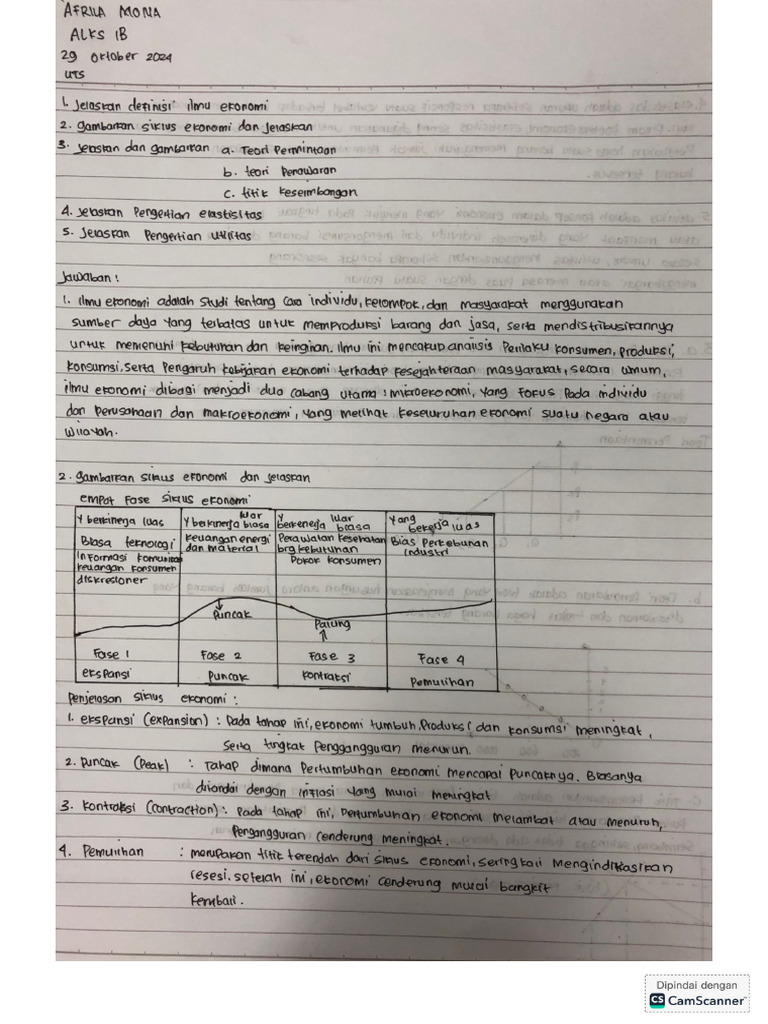 AFRILA MONA
ALKS 1B
29 Oktober 2024
UTS
1. Jelaskan definisi ilmu ekonomi
2. Gambarkan siklus ekonomi dan jelaskan
3. Jelaskan dan gambarkan a. Teori Permintaan
b. teori Penawaran
c. titik keseimbangan
4. Jelaskan Pengertian elastisitas
5. Jelaskan Pengertian utilitas
Jawaban :
1. Ilmu ekonomi adalah studi tentang cara individu, kelompok, dan masyarakat menggunakan
sumber daya yang terbatas untuk memproduksi barang dan jasa, serta mendistribusikannya
untuk memenuhi kebutuhan dan keinginan. Ilmu ini mencakup analisis Perilaku konsumen, produksi,
konsumsi, serta Pengaruh kebijakan ekonomi terhadap kesejahteraan masyarakat, secara umum,
ilmu ekonomi dibagi menjadi dua cabang utama : mikroekonomi, yang fokus Pada individu
dan perusahaan dan makroekonomi, yang melihat keseluruhan ekonomi suatu negara atau
wilayah.
2. Gambarkan siklus ekonomi dan jelaskan
empat Fase siklus ekonomi
Y berkinerja luas
Y berkinerja luar biasa
Y berkenerja luar biasa
Yang bekerja luas
Biasa teknologi
informasi komunikasi
keuangan konsumen
diskresioner
Keuangan energi
dan material
Perawatan kesehatan
brg kebutuhan
Pokok konsumen
Bias Perkebunan
industri
Puncak
Palung
Fase 1
Fase 2
Fase 3
Fase 4
ekspansi
puncak
kontraksi
Pemulihan
Penjelasan siklus ekonomi :
1. ekspansi (expansion) : Pada tahap ini, ekonomi tumbuh, Produksi dan konsumsi meningkat,
Serta tingkat Penggangguran menurun.
2. Puncak (Peak) : Tahap dimana Pertumbuhan ekonomi mencapai Puncaknya. Biasanya
ditandai dengan inflasi yang mulai meningkat
3. Kontraksi (Contraction) : Pada tahap ini, Pertumbuhan ekonomi melambat atau menurun,
Pengangguran cenderung meningkat.
4. Pemulihan : merupakan titik terendah dari siklus ekonomi, seringkali Mengindikasikan
resesi. setelah ini, ekonomi cenderung mulai bangkit
kembali.
Dipindai dengan
CS CamScanner